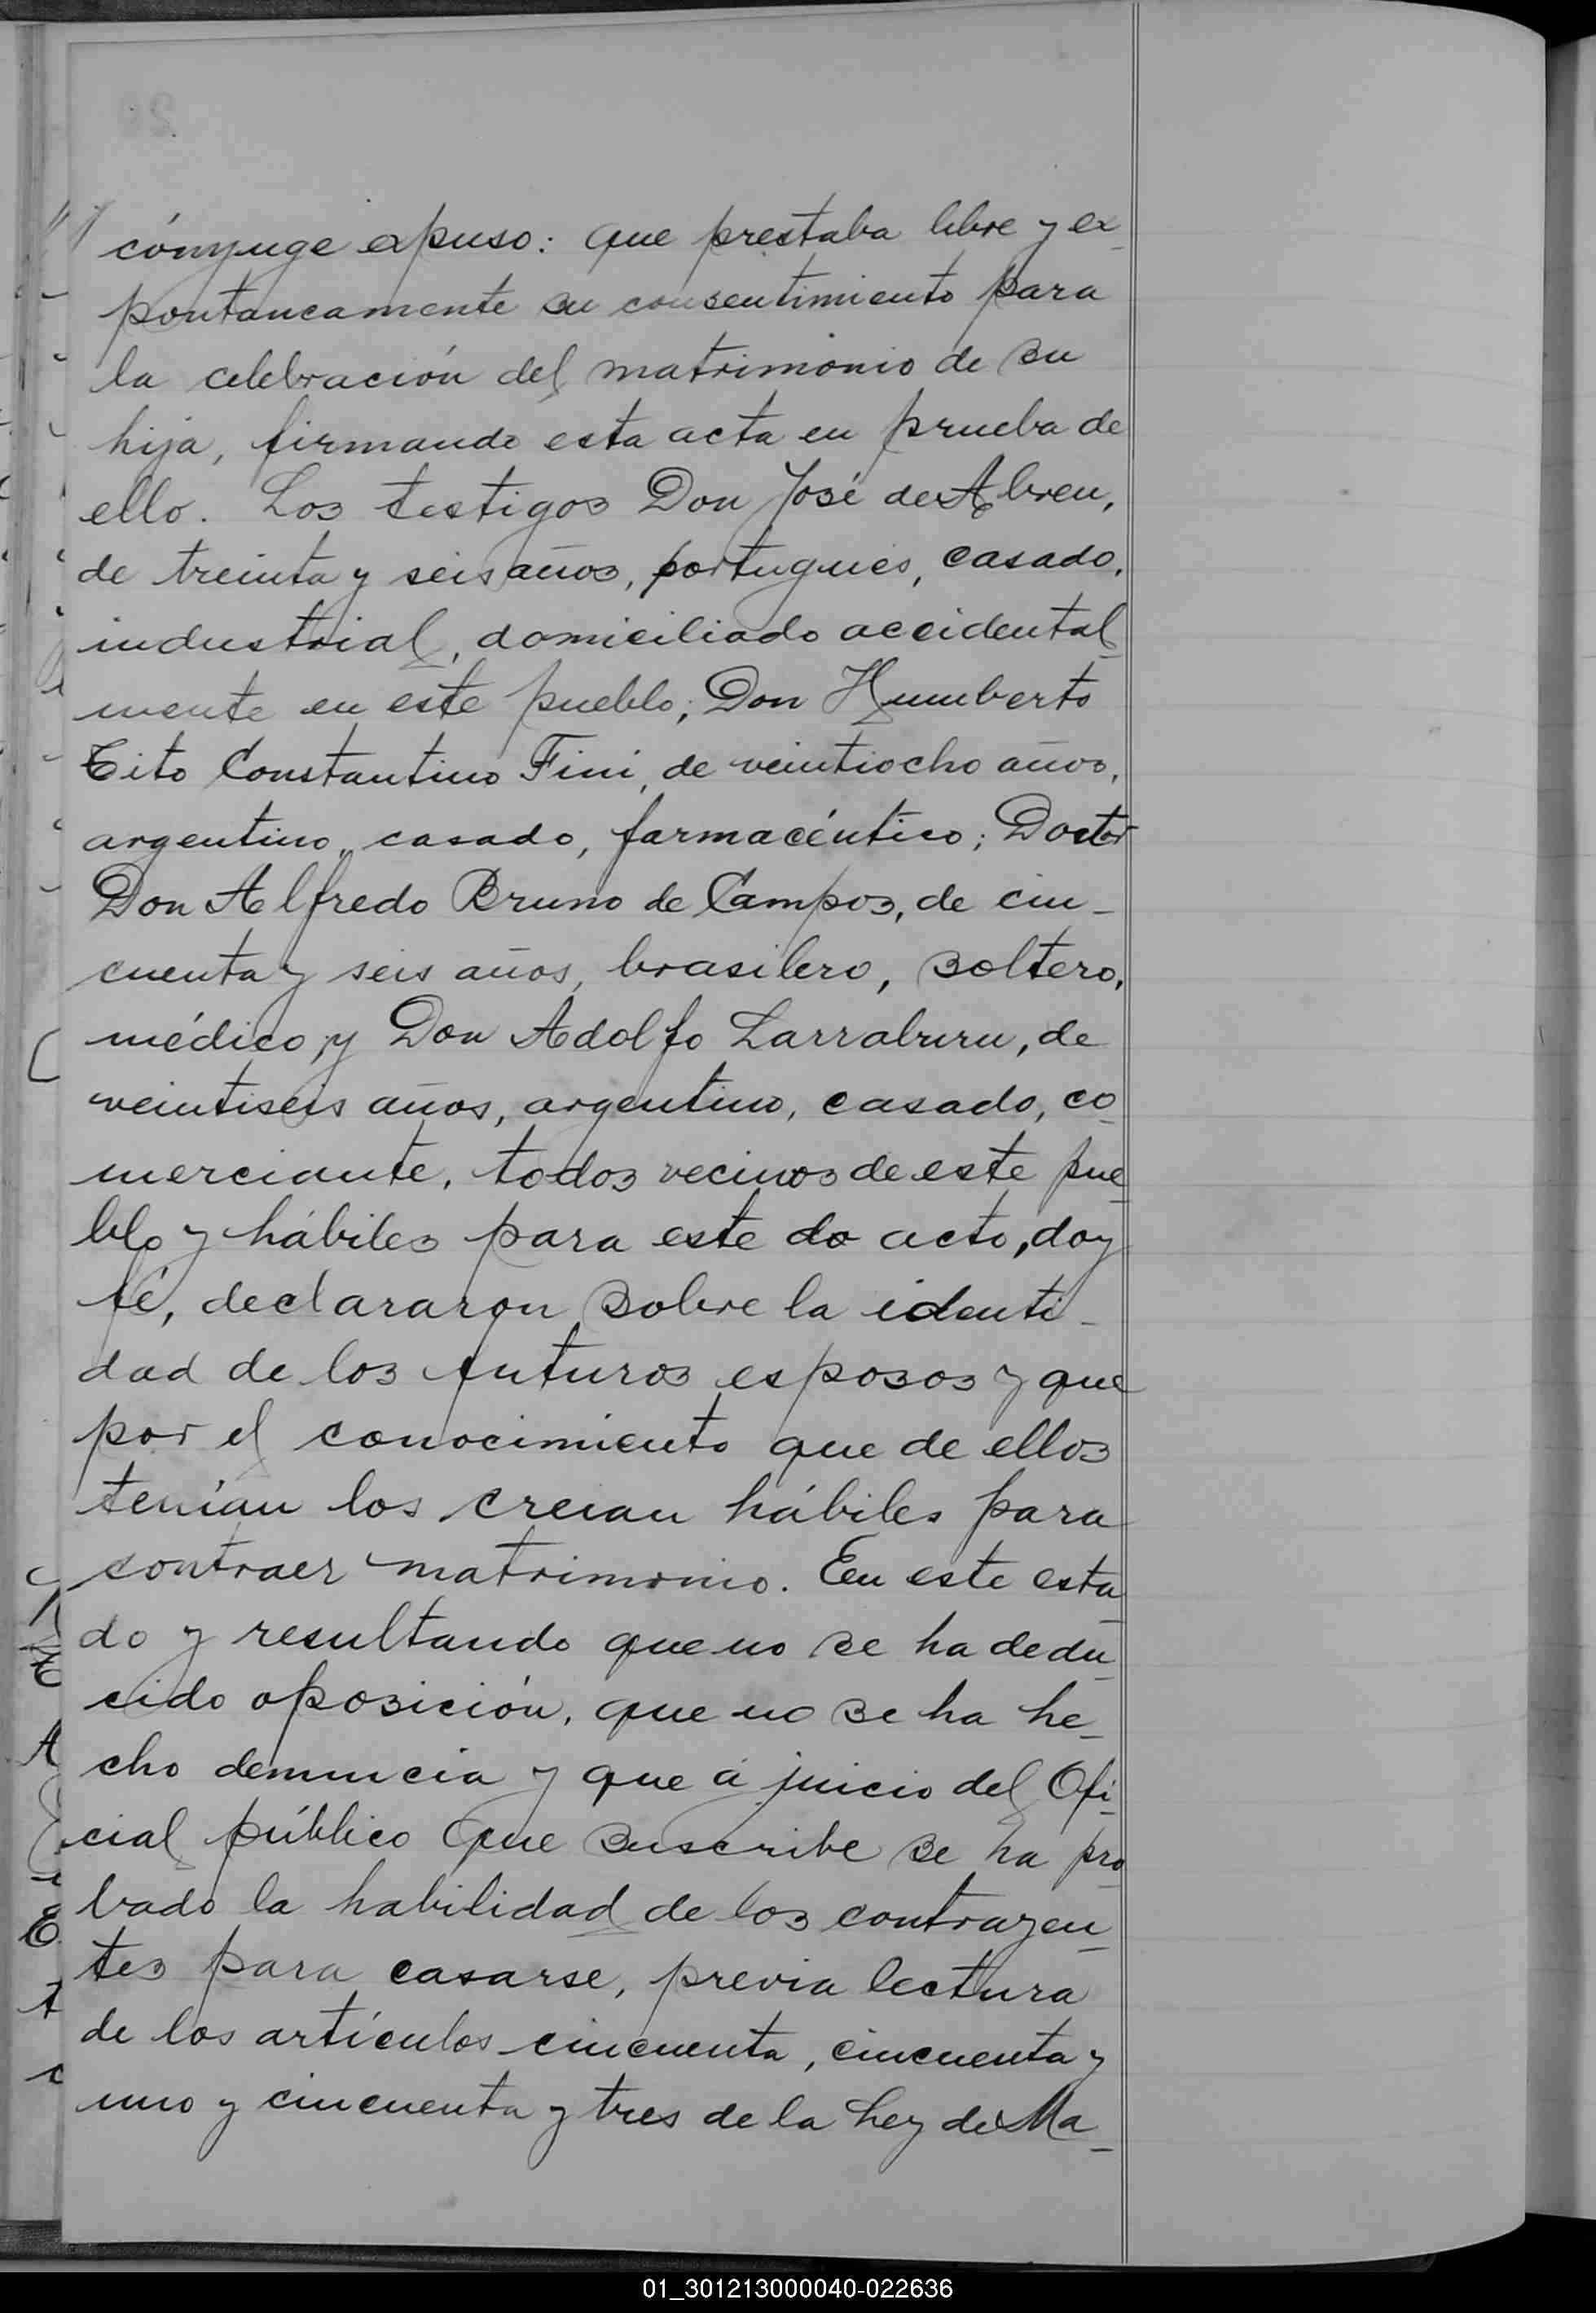 cónyuge expuso: que prestaba libre y ex_
pontaneamente su consentimiento para
la celebración del matrimonio de su
hija, firmando esta acta en prueba de
ello. Los testigos Don José de Abreu,
de treinta y seis años, portugués, casado,
industrial, domiciliado accidental_
mente en este pueblo; Don Humberto
Tito Constantino Fini, de veintiocho años,
argentino, casado, farmacéutico; Doctor
Don Alfredo Bruno de Campos, de cin_
cuenta y seis años, brasilero, soltero,
médico, y Don Adolfo Larraburu, de
veintiseis años, argentino, casado, co_
merciante, todos vecinos de este pue_
blo y hábiles para este do acto, doy
fé, declararon sobre la identi_
dad de los futuros esposos y que
por el conocimiento que de ellos
tenían los creian hábiles para
contraer matrimonio. En este esta_
do y resultando que no se ha dedu_
cido oposición, que no se ha he_
cho denuncia y que á juicio del Ofi_
cial público que suscribe se ha pro_
bado la habilidad de los contrayen_
tes para casarse, previa lectura
de los artículos cincuenta, cincuenta y
uno y cincuenta y tres de la Ley de Ma_
01_301213000040-022636